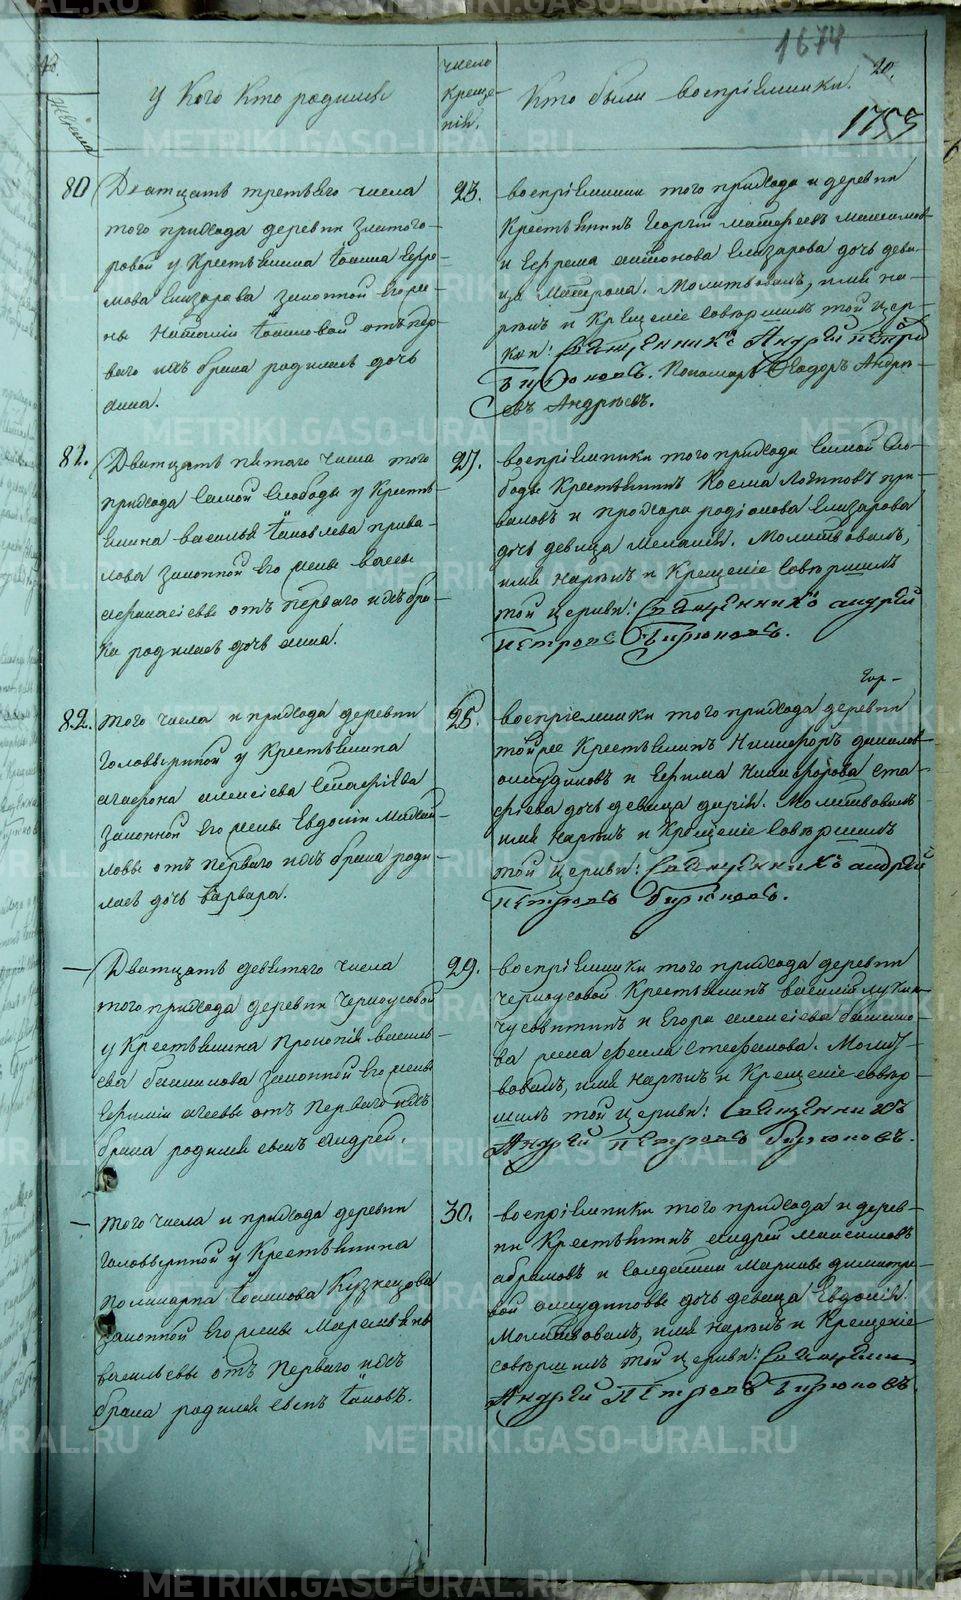 1674
20.
1753
Женска
У кого кто родился
число крещенія.
Кто были воспріемники.
80
Дватцать третьяго числа
того прихода деревни Златого-
ровой у Крестьянина
законной его же-
ны Наталіи отъ пер-
ваго ихъ брака родилась дочь
Анна.
23.
воспріемники того прихода и деревни
Крестьянинъ Георгій
и Ефрема Антонова Елизарова дочь деви-
ца Матрона. Молитвовалъ, имя на-
рекъ и Крещеніе совершилъ той цер-
кви: Священникъ Андрей Петровъ
Бирюковъ. Пономарь Феодоръ Андре-
евъ Андреевъ.
81.
Дватцать пятаго числа того
прихода самой слободы у Кресть-
янина Василья Іаковлева Прива-
лова законной его жены Вассы
Афанасіевы отъ перваго ихъ бра-
ка родилась дочь Анна.
27.
воспріемники того прихода самой Сло-
боды Крестьянинъ Косма Логиновъ При-
валовъ и Прохора Родіонова Елизарова
дочь девица Меланія. Молитвовалъ,
имя нарекъ и Крещеніе совершилъ
той церкви: Священникъ Андрей
Петровъ Бирюковъ.
82.
Того числа и прихода деревни
Головыриной у Крестьянина
Агафона Алексіева
законной его жены Евдокіи Михай-
ловы отъ перваго ихъ брака роди-
лась дочь Варвара.
25.
Гор-
воспріемники того прихода деревни
Крестьянинъ Никифоръ Даниловъ
и Ефима Никифорова Ста-
фіева дочь девица Дарія. Молитвовалъ
имя нарекъ и Крещеніе совершилъ
той церкви: Священникъ Андрей
Петровъ Бирюковъ.
Дватцать девятаго числа
того прихода деревни Черноусовой
у Крестьянина Прокопія Василь-
ева законной его жены
Ефиміи Агеевы отъ перваго ихъ
брака родился сынъ Андрей.
29.
воспріемники того прихода деревни
Черноусовой Крестьянинъ Василій Лукинъ
Чусовитинъ и Егора Алексіева
жена Фекла Стефанова. Молит-
вовалъ, имя нарекъ и Крещеніе совер-
шилъ той церкви: Священникъ
Андрей Петровъ Бирюковъ.
Того числа и прихода деревни
Головыриной у Крестьянина
Поликарпа Іоакимова Кузнецова
законной его жены Марем
Васильевы отъ перваго ихъ
брака родился сынъ Іаковъ.
30.
воспріемники того прихода и дерев-
ни Крестьянинъ Андрей Максимовъ
Абрамовъ и Солдатки Марины Димитріе-
вой дочь девица Евдокія.
Молитвовалъ, имя нарекъ и Крещеніе
совершилъ той церкви: Священникъ
Андрей Петровъ Бирюковъ.
METRIKI.GASO-URAL.RU